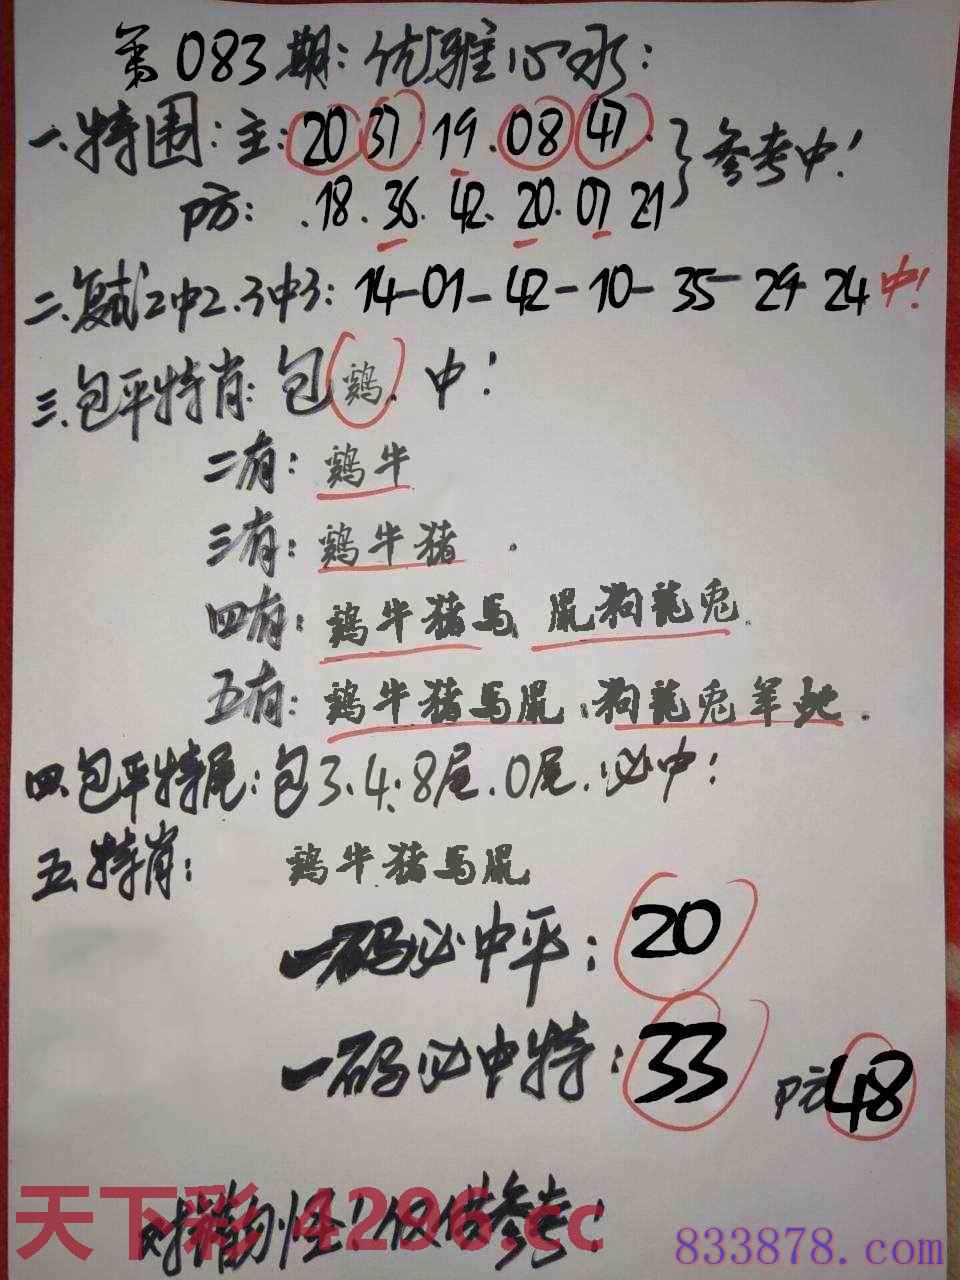 第083期：优雅心水：
一.特围：主：20 37 19.08 47. 参考中！
防：.18.36.42.20.07 21
二.复式2中2.3中3：14-01-42-10-35-29 24 中！
三.包平特肖：包鷄.中！
二有：鷄牛
三有：鷄牛猪.
四有：鷄牛猪馬 鼠狗龍兎.
五有：鷄牛猪馬鼠.狗龍兎羊蛇.
四.包平特尾：包3.4.8尾.0尾.必中！
五.特肖：鷄牛猪馬鼠
一码必中平：20
一码必中特：33 防48
天下彩 4296.cc
错勿怪！仅供参考！
833878.com